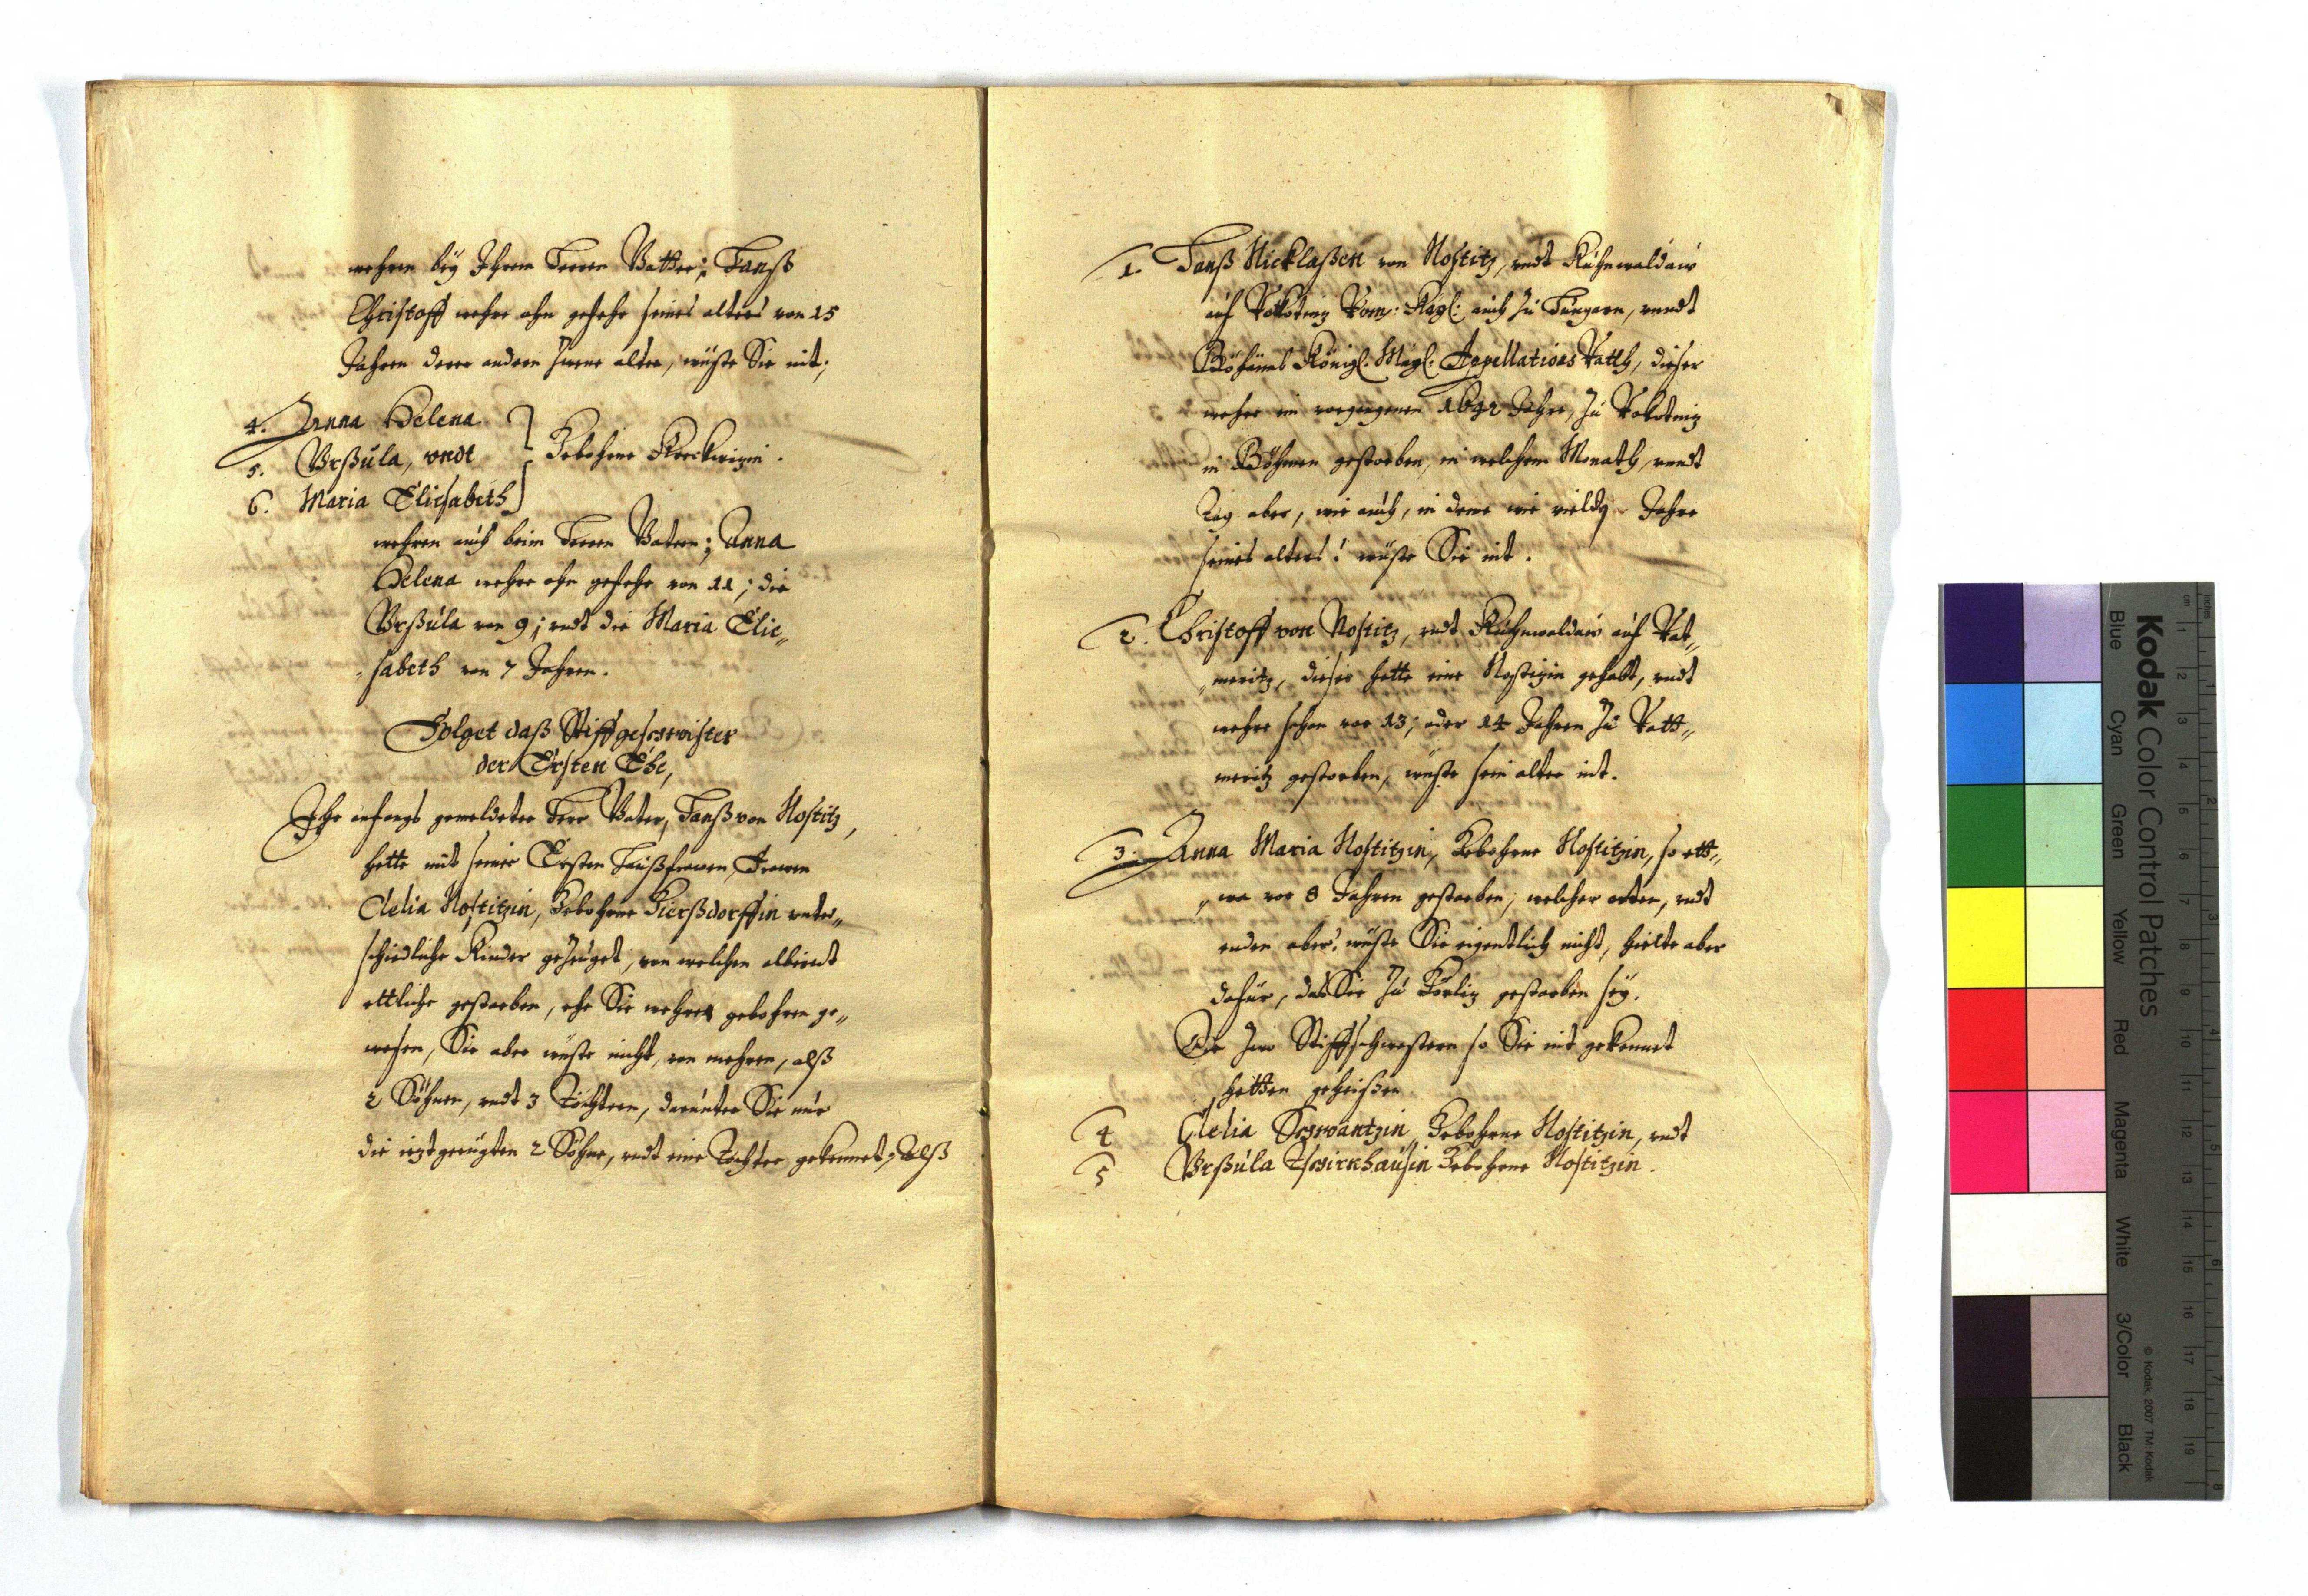 wehren bey Ihrem Herren Vatter; Hanß
Christoff wehre ohn gefehr seines alters von 15
Jahren derer andern Zwene alter, wüste Sie nit;
4. Anna Helena
5. Vrßula, vndt
Gebohrne Kreckwizin.
6. Maria Eliesabeth
wehren auch beim Herren Vatern; Anna
Helena wehre ohn gefehr von 11; die
Vrßula von 9; vndt die Maria Elie„
„sabeth von 7 Jahren.
Folget daß Stiffgeschwister
der Ersten Ehe,
Ihr anfangs gemeldeter Herr Vater, Hanß von Nostitz,
hette mit seiner Ersten Haußfrawen, Frawen
Clelia Nostitzin, Gebohrne Gierßdorffin vnter„
schiedliche Kinder gezeuget, von welchen albereit
ettliche gestorben, ehe Sie wehre gebohren ge„
wesen, Sie aber wüste nicht, von mehren, alß
2 Söhnen, vndt 3 Töchtern, darunter Sie nur
die iezt gerügten 2 Söhne, vndt eine Tochter gekennet, Alß
1. Hanß Nicklaßen von Nostitz, vndt Kuhnwaldaw
auf Rokotniz Röm: Kayl: auch zu Hungarn, vnndt
Böhaimb Königl. Mayl: Appellations Rath, dieser
wehre im vorgangenen 1642 Jahre, zu Rokotniz
in Böhmen gestorben, in welchem Monath, vnndt
Tag aber, wie auch, in deme wie vielden Jahre
seines alters! wüste Sie nit.
2. Christoff von Nostitz, vndt Kuhnwaldaw auf Rat„
„meritz, dieser hette eine Nostizin gehabt, vndt
wehre schon vor 13; oder 14 Jahren zu Ratt„
meritz gestorben, wüste sein alter nit.
3. Anna Maria Nostitzin, Gebohrne Nostitzin, so ett„
„wa vor 8 Jahren gestorben, welcher orten, vndt
enden aber! wüste Sie eigentlich nicht, hielte aber
dafür, das Sie zu Görliz gestorben sey.
Die zwo Stiffschwestern so Sie nit gekennet
hetten geheißen
4 Clelia Schwantzin, Gebohrne Nostitzin, vndt
5 Vrßula Tschirnhausin Gebohrne Nostitzin.
Kodak Color Control Patches
Blue
Cyan
Green
Yellow
Red
Magenta
White
3/Color
Black
© Kodak, 2007 TM: Kodak
inches
cm
1
2
3
4
5
6
7
8
9
10
11
12
13
14
15
16
17
18
19
1
2
3
4
5
6
7
8